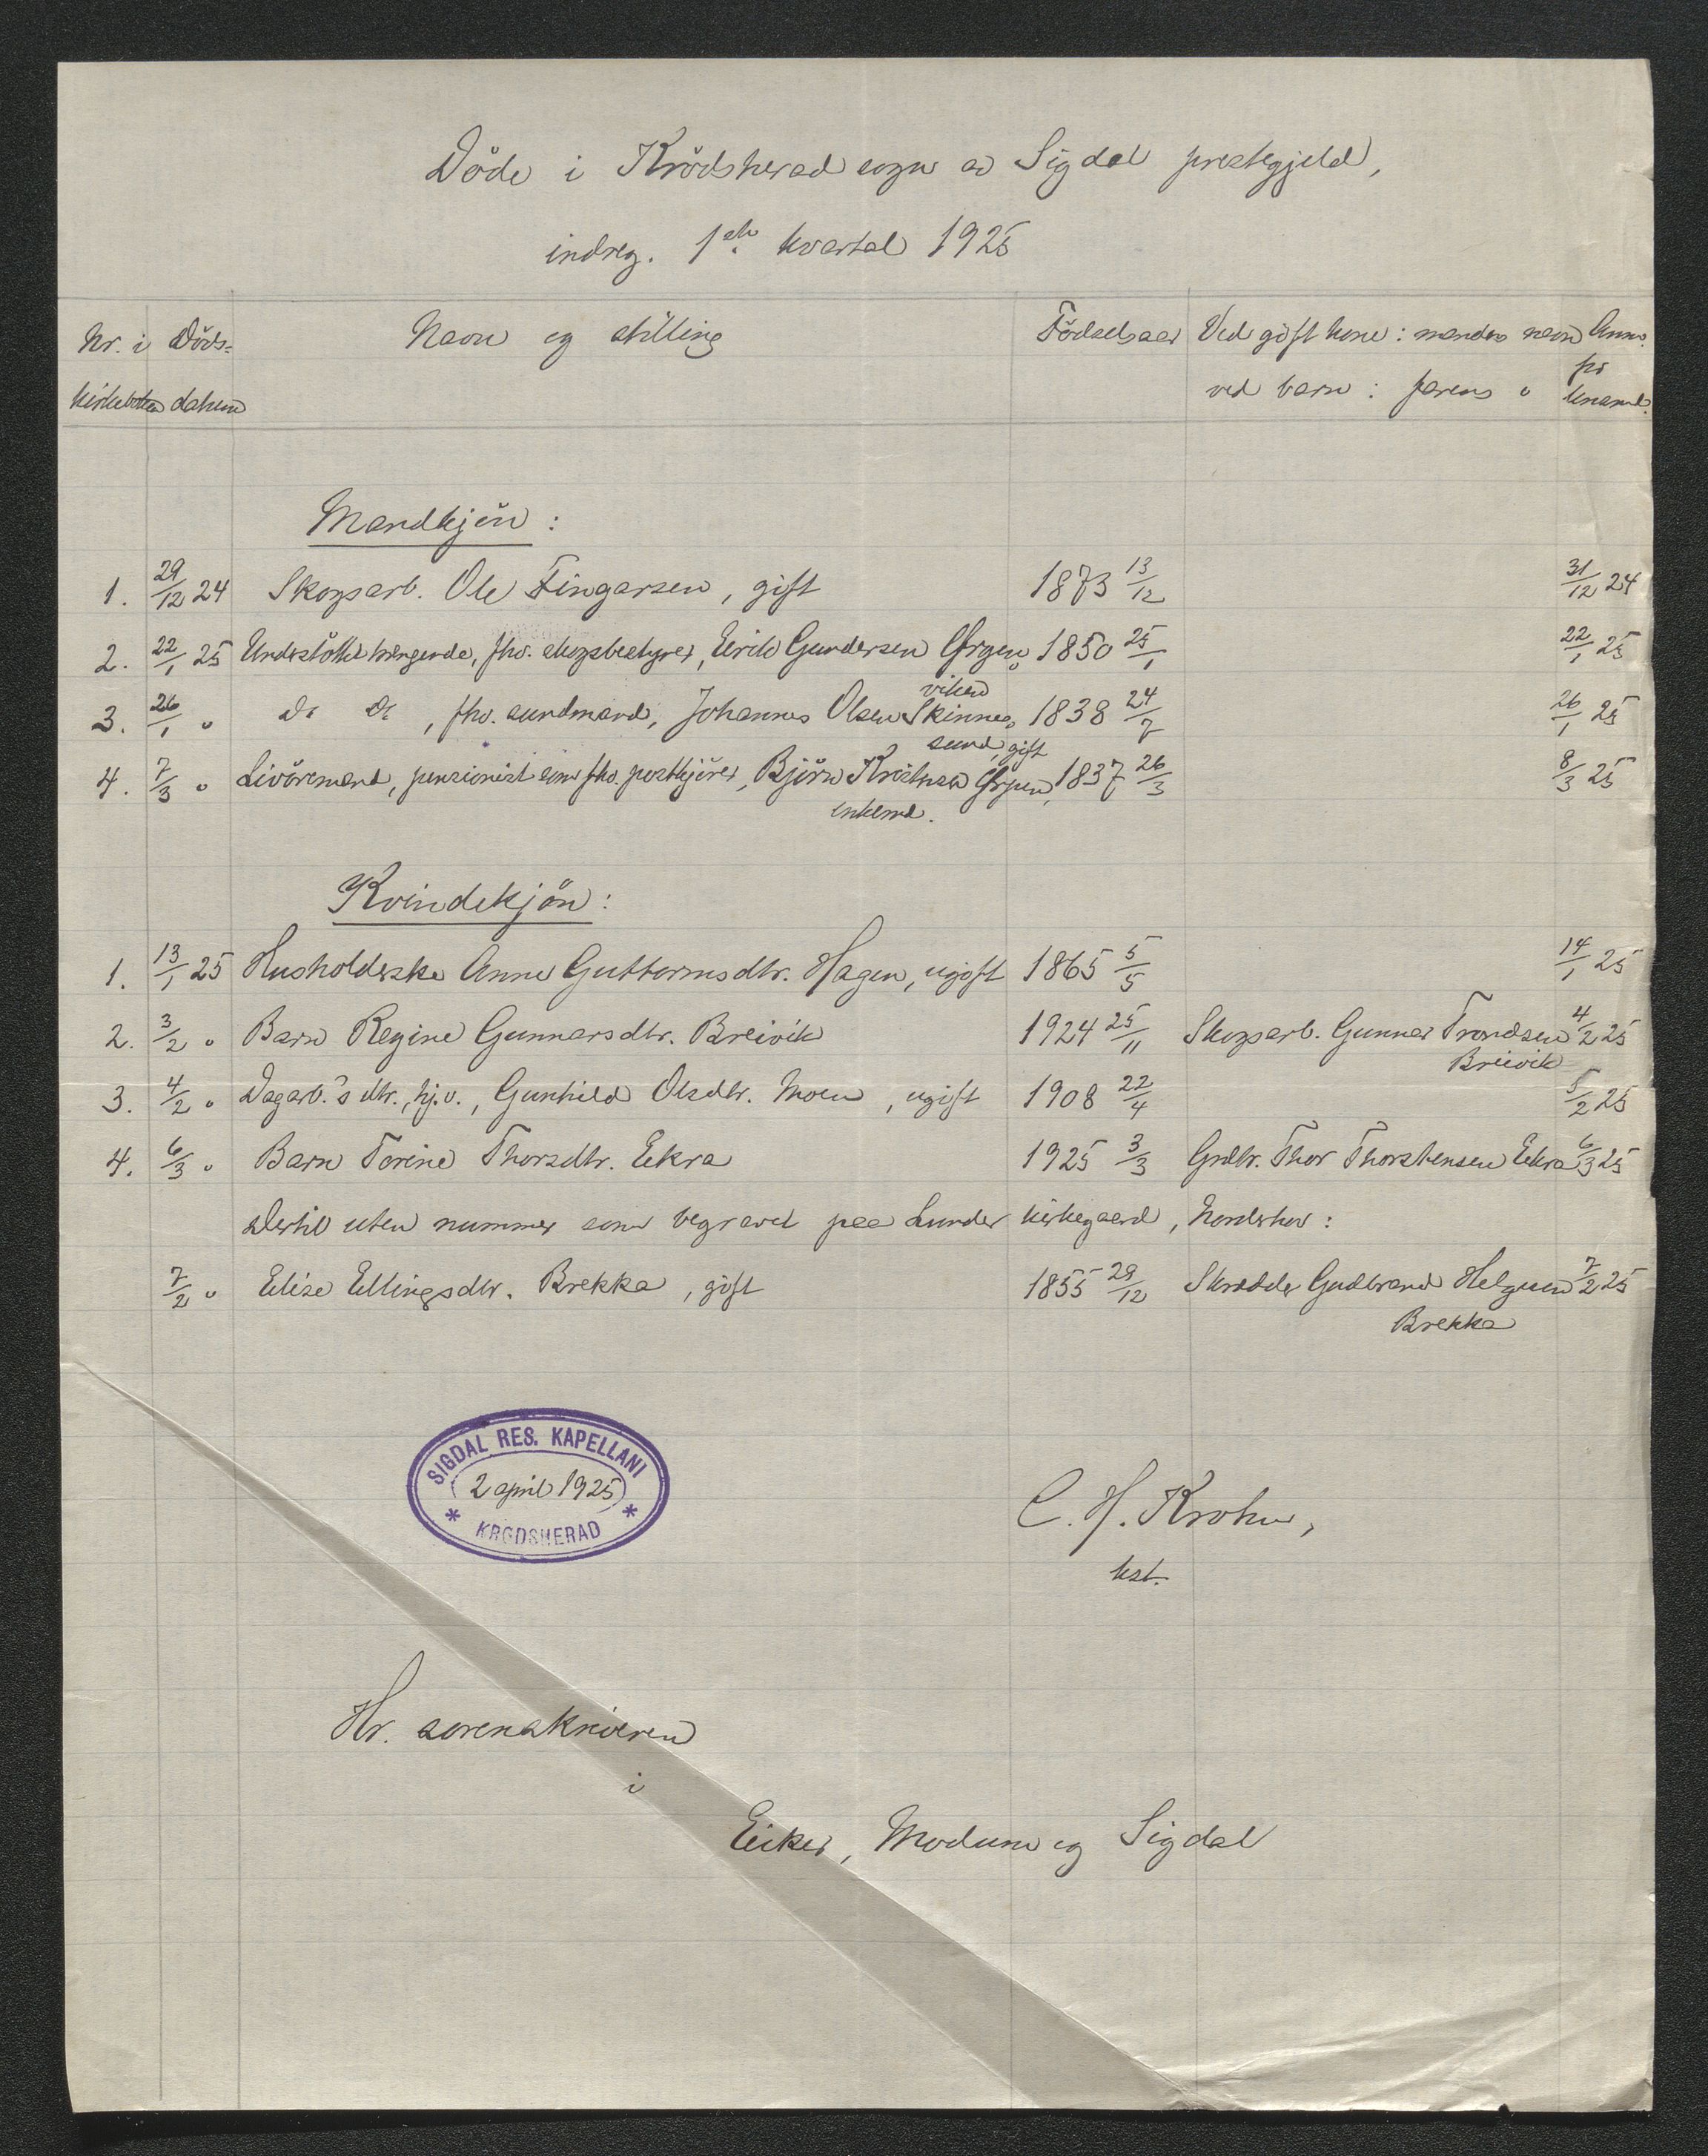 Döde i Krödsherad sogn av Sigdal prestegjeld,
indreg. 1ste kvartal 1925
Nr. i kirkeboken Döds-datum Navn og stilling Födselsaar Ved gift kone: mandens navn ved barn: farens " Anm. fr
1. 29/12 24 Skogsarb. Ole Fingarsen, gift 1873 13/12 31/12 24
2. 22/1 25 Understöttet trængende, fhv. skogsbestyrer, Eirik Gundersen Ørgen 1850 25/1 22/1 25
viken
3. 26/1 " do do, fhv. sundmand, Johannes Olsen Skinnes 1838 24/7 26/1 25
sund, gift
4. 7/3 " Livöremand, pensionist som fhv. postkjörer, Björn Kristnsen Ørgen, 1837 26/3 8/3 25
enkem.
Mandkjön:
Kvindekjön:
1. 13/1 25 Husholderske Anne Guttormsdtr. Hagen, ugift 1865 5/5 14/1 25
2. 3/2 " Barn Regine Gunnarsdtr. Breivik 1924 25/11 Skogsarb. Gunnar Trondsen 4/2 25
Breivik
3. 4/2 " Dagarb.'s dtr., hj.v., Gunhild Olsdtr. Moen, ugift 1908 22/4 5/2 25
4. 6/3 " Barn Torine Thorsdtr. Eekra 1925 3/3 Grdbr. Thor Thorstensen Eekra 6/3 25
Dertil uten nummer som begravet paa Lunder kirkegaard, Norderhov:
7/2 " Elise Ellingsdtr. Brekka, gift 1855 29/12 Skrædder Gudbrand Helgesen 7/2 25
Brekka
SIGDAL RES. KAPELLANI
2 april 1925
* KRØDSHERAD *
C. H. Krohn,
kst.
Hr. sorenskriveren
i
Eiker, Modum og Sigdal